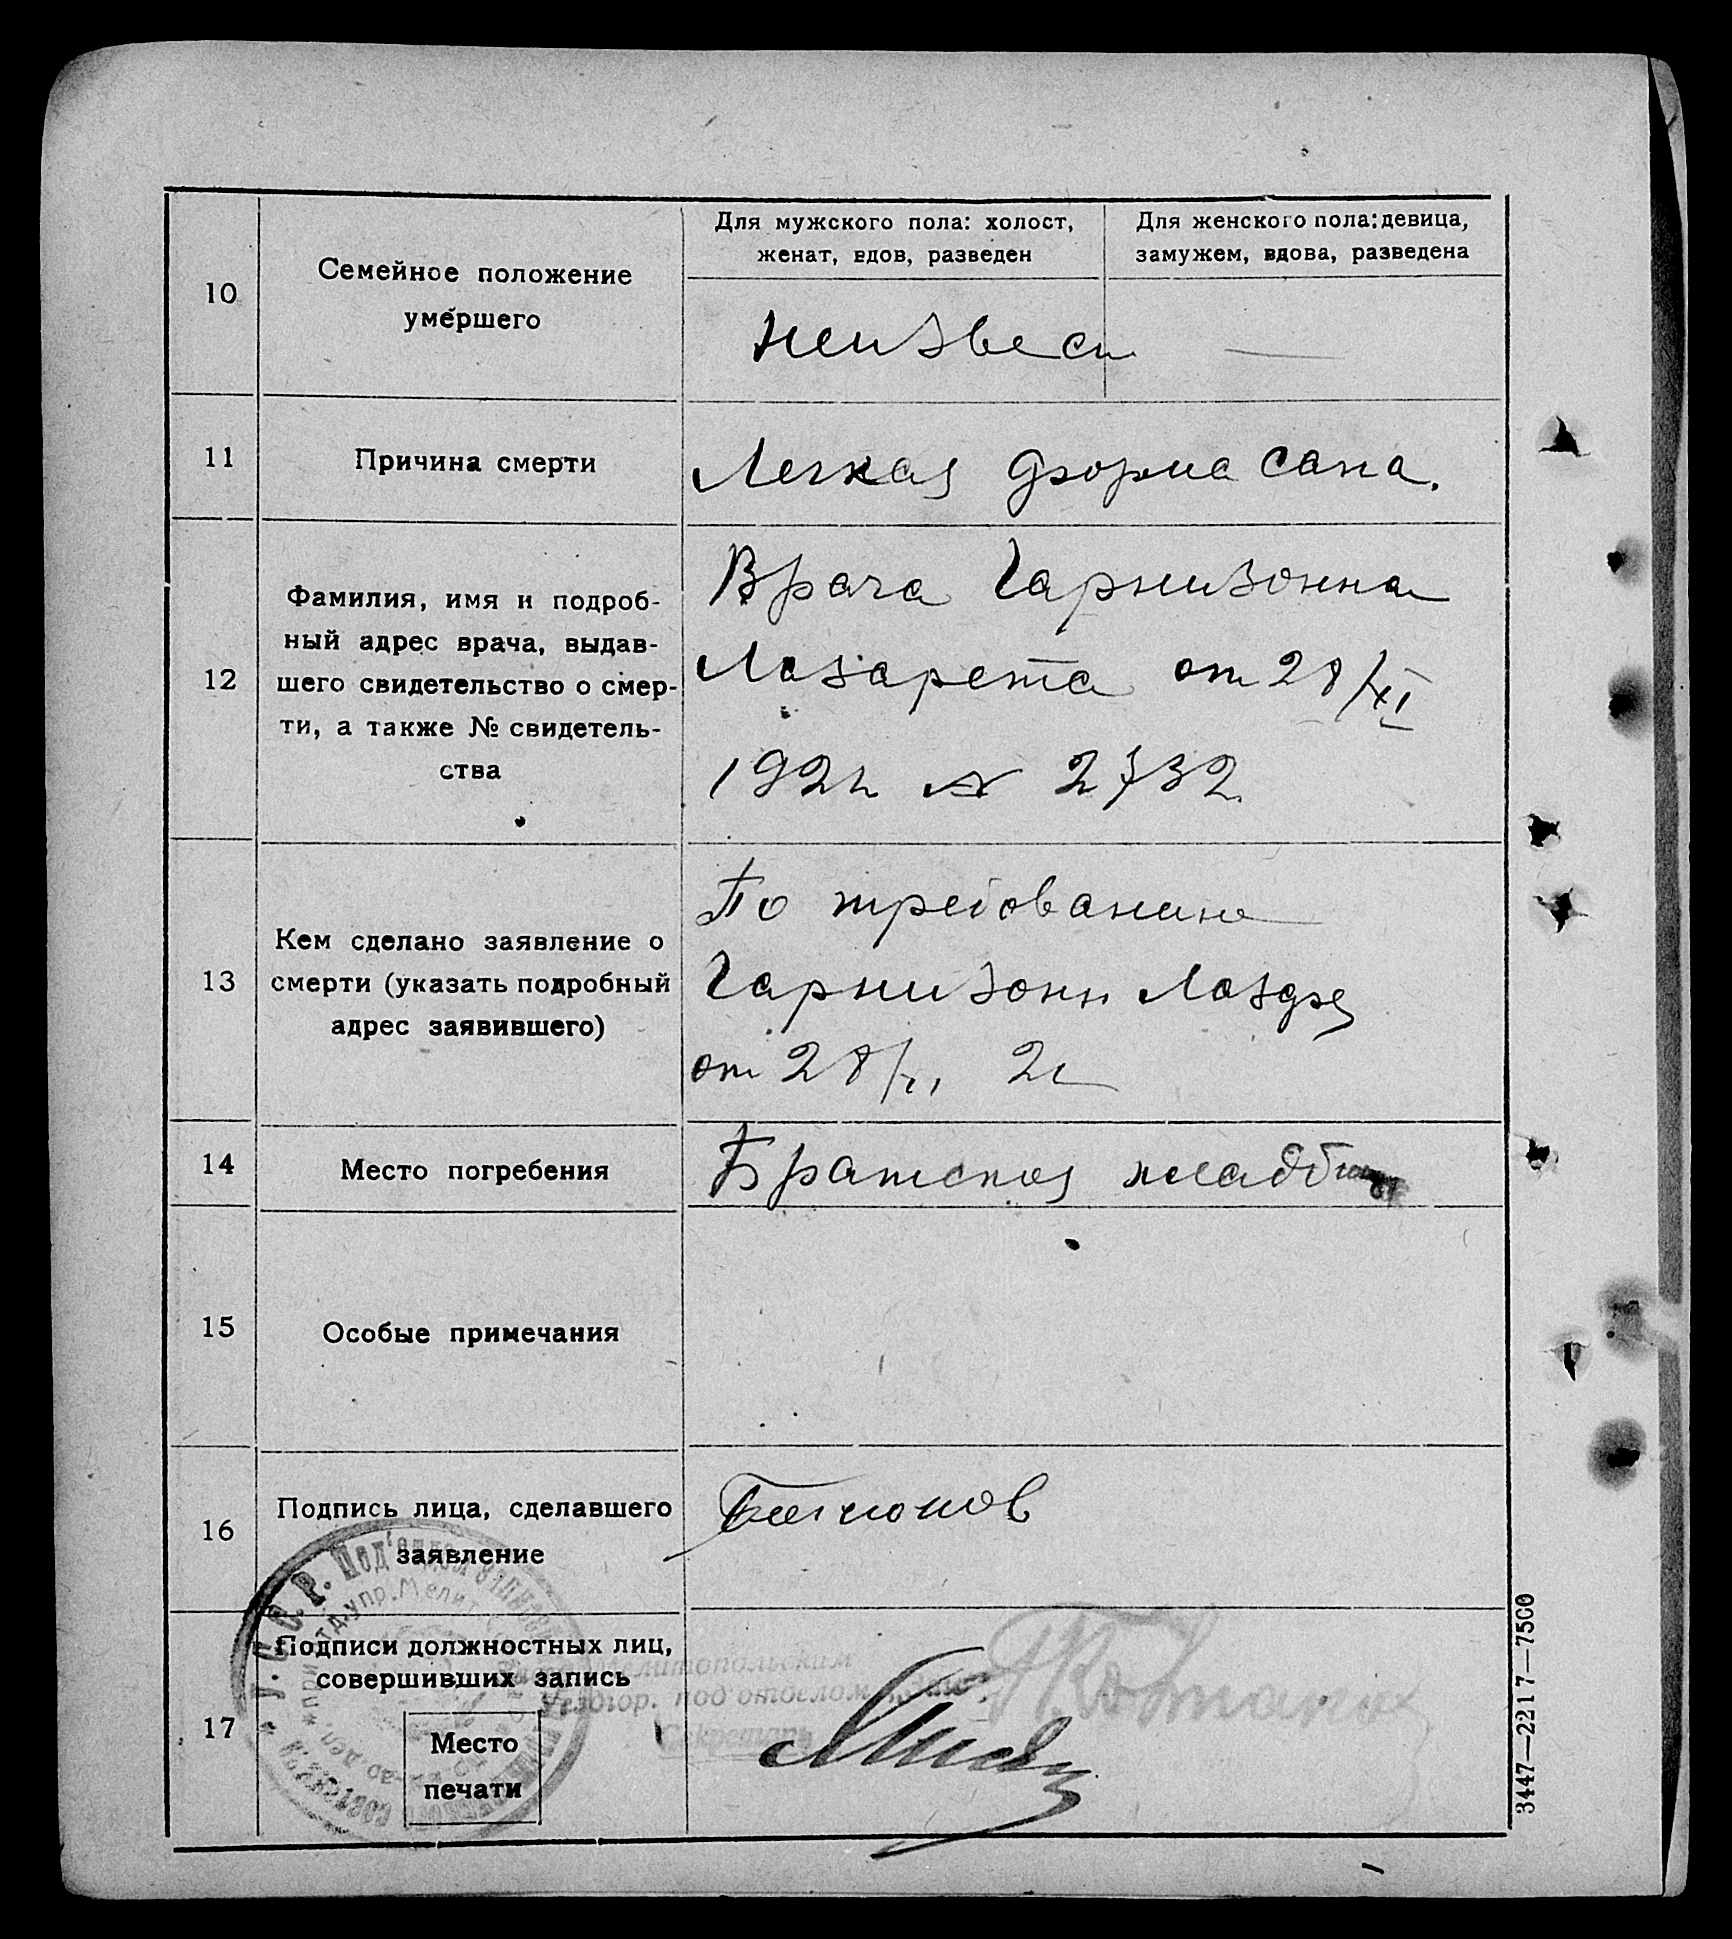 10
Семейное положение
умершего
Для мужского пола: холост,
женат, вдов, разведен
Для женского пола: девица,
замужем, вдова, разведена
неизвест
11
Причина смерти
Легкая форма сапа.
12
Фамилия, имя и подроб-
ный адрес врача, выдав-
шего свидетельство о смер-
ти, а также № свидетель-
ства
Врача Гарнизонна
Лазарета от 28/XI
192 № 2732
13
Кем сделано заявление о
смерти (указать подробный
адрес заявившего)
По требованию
Гарнизонн
от 28/XI
14
Место погребения
Братское кладбище
15
Особые примечания
16
Подпись лица, сделавшего
заявление
17
Подписи должностных лиц,
совершивших запись
Место
печати
У.С.С.Р. Под'отдел
упр. Мелит
Мелитопольским
Уездгор. под'отделом
Секретарь
3447—2217—7500